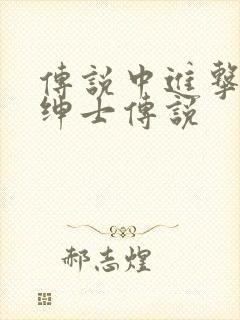 傳說中進擊
绅士傳説
郝志煌